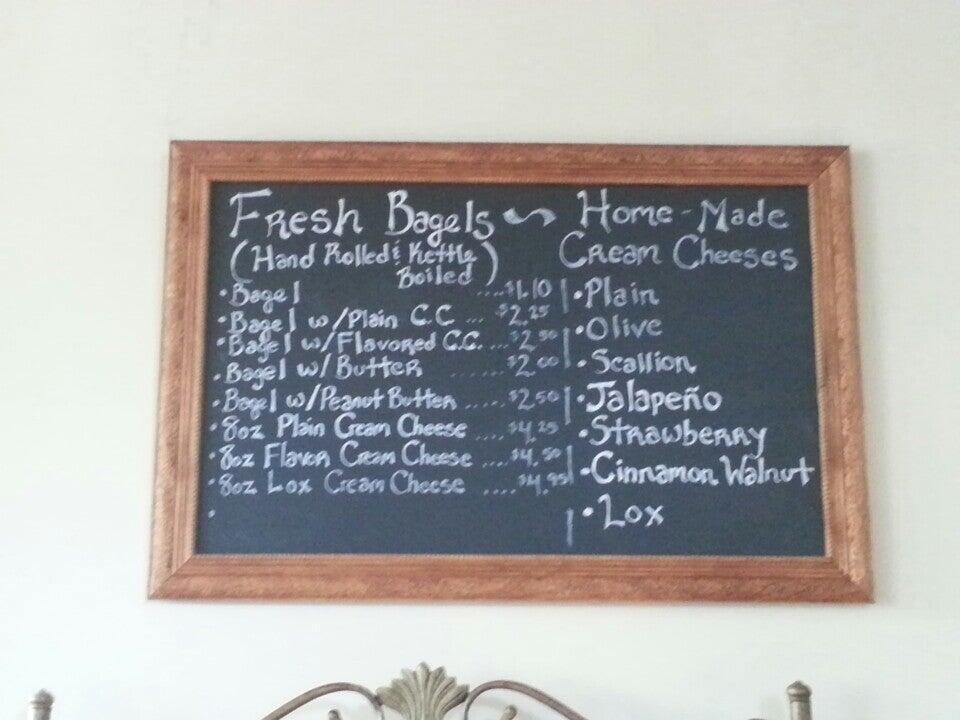 Fresh Bagels ~ Home-Made
(Hand Rolled & Kettle Boiled) Cream Cheeses
• Bagel ....$1.10
• Bagel w/Plain C.C ... $2.25
• Bagel w/Flavored C.C. ....$2.50
• Bagel w/Butter ....... $2.00
• Bagel w/Peanut Butter ..... $2.50
• 8oz Plain Cream Cheese .... $4.25
• 8oz Flavor Cream Cheese ....$4.50
• 8oz Lox Cream Cheese ....$4.95
•
• Plain
• Olive
• Scallion
• Jalapeño
• Strawberry
• Cinnamon Walnut
• Lox